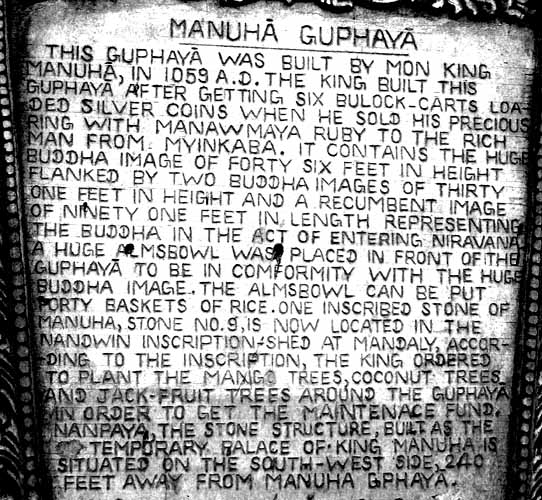 MANUHĀ GUPHAYĀ
THIS GUPHAYĀ WAS BUILT BY MON KING
MANUHĀ, IN 1059 A.D. THE KING BUILT THIS
GUPHAYĀ AFTER GETTING SIX BULOCK-CARTS LOA-
DED SILVER COINS WHEN HE SOLD HIS PRECIOUS
RING WITH MANAWMAYA RUBY TO THE RICH
MAN FROM MYINKABA. IT CONTAINS THE HUGE
BUDDHA IMAGE OF FORTY SIX FEET IN HEIGHT
FLANKED BY TWO BUDDHA IMAGES OF THIRTY
ONE FEET IN HEIGHT AND A RECUMBENT IMAGE
OF NINETY ONE FEET IN LENGTH REPRESENTING
THE BUDDHA IN THE ACT OF ENTERING NIRAVANA
A HUGE ALMSBOWL WAS PLACED IN FRONT OF THE
GUPHAYĀ TO BE IN COMFORMITY WITH THE HUGE
BUDDHA IMAGE. THE ALMSBOWL CAN BE PUT
FORTY BASKETS OF RICE. ONE INSCRIBED STONE OF
MANUHA, STONE NO. 9, IS NOW LOCATED IN THE
NANDWIN INSCRIPTION-SHED AT MANDALY, ACCOR-
DING TO THE INSCRIPTION, THE KING ORDERED
TO PLANT THE MANGO TREES, COCONUT TREES
AND JACK-FRUIT TREES AROUND THE GUPHAYA
IN ORDER TO GET THE MAINTENACE FUND.
NANPAYA, THE STONE STRUCTURE, BUILT AS THE
TEMPORARY PALACE OF KING MANUHA IS
SITUATED ON THE SOUTH-WEST SIDE, 240
FEET AWAY FROM MANUHA GPHAYA.